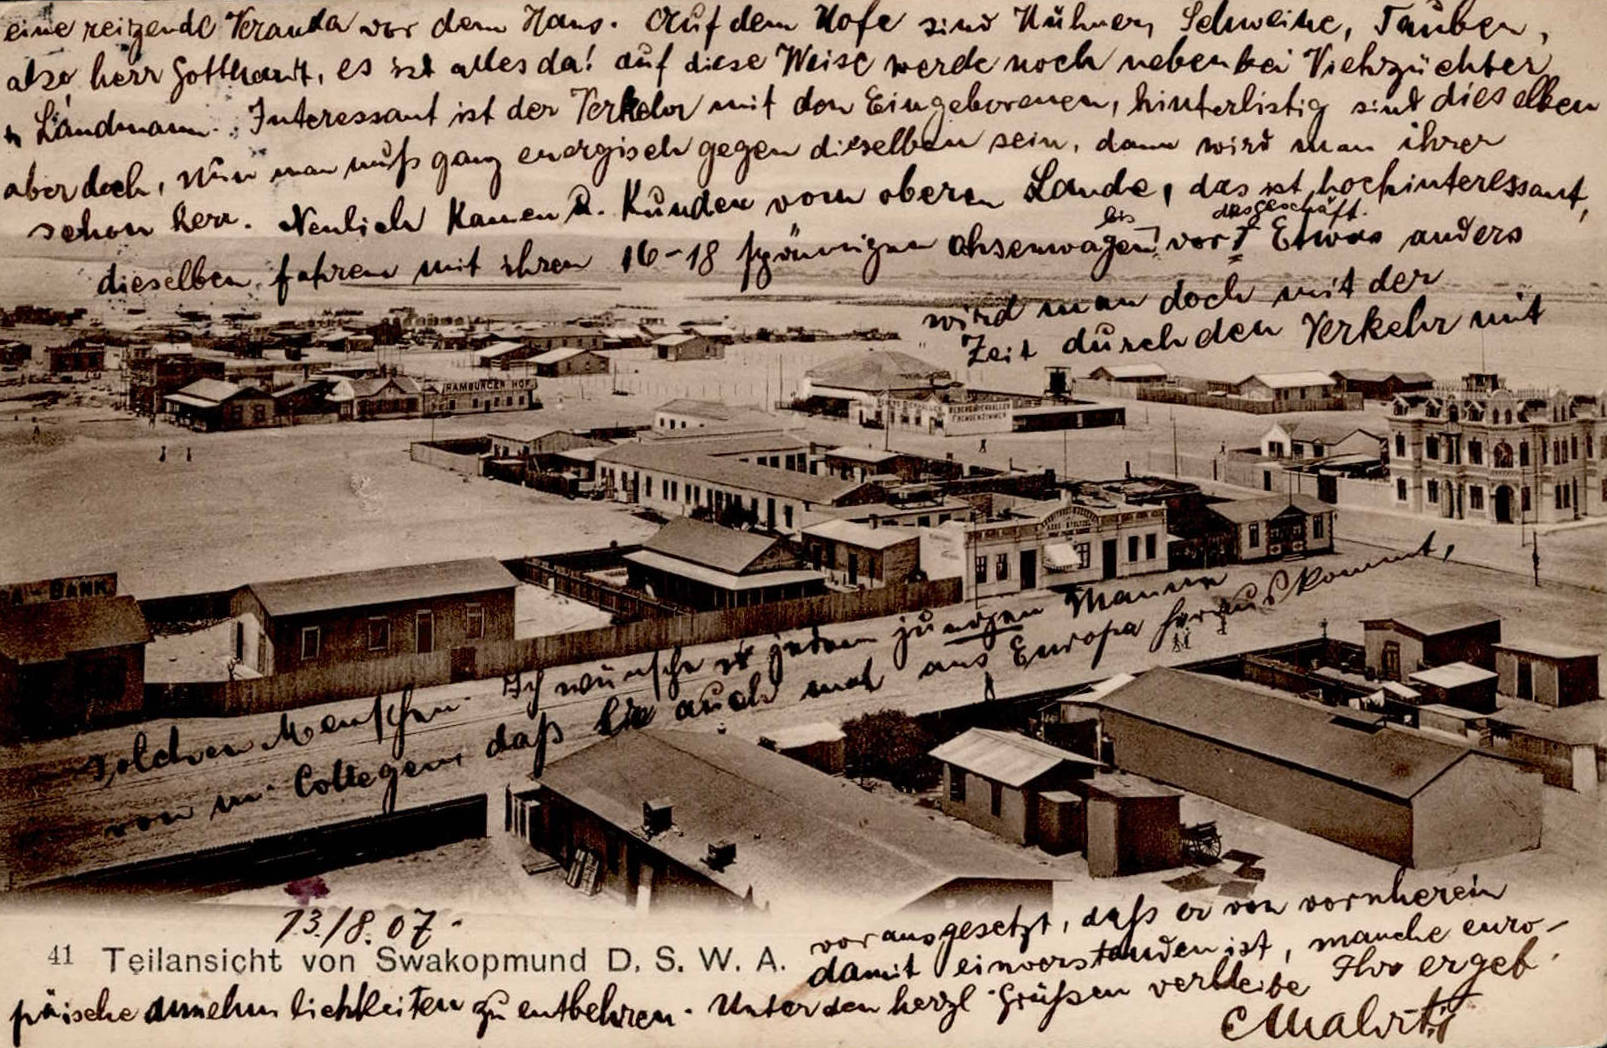 eine reizende Veranda vor dem Haus. Auf dem Hofe sind Hühner, Schweine, Tauben,
also herr Gotthardt, es ist alles da! auf diese Weise werde noch nebenbei Viehzüchter
u Landmann. Interessant ist der Verkehr mit den Eingeborenen, hinterlistig sind dieselben
aber doch, man muß ganz energisch gegen dieselben sein, dann wird man ihrer
schon herr. Neulich kamen 2. Kunden vom oberen Lande, das ist hochinteressant,
dieselben fahren mit ihren 16-18 spännigen Ochsenwagen bis vor das geschäft. Etwas anders
wird man doch mit der
Zeit durch den Verkehr mit
HAMBURGER HOF
FREMDENZIMMER
BANK
solchen Menschen. Ich wünsche jedem jungen Manne
von m. Collegen, daß sie auch mal aus Europa herauskommt,
13./8.07.
vorausgesetzt, daß er von vornherein
41 Teilansicht von Swakopmund D. S. W. A.
damit einverstanden ist, manche euro-
päische Annehmlichkeiten zu entbehren. Unter den herzl Grüßen verbleibe Ihr ergeb.